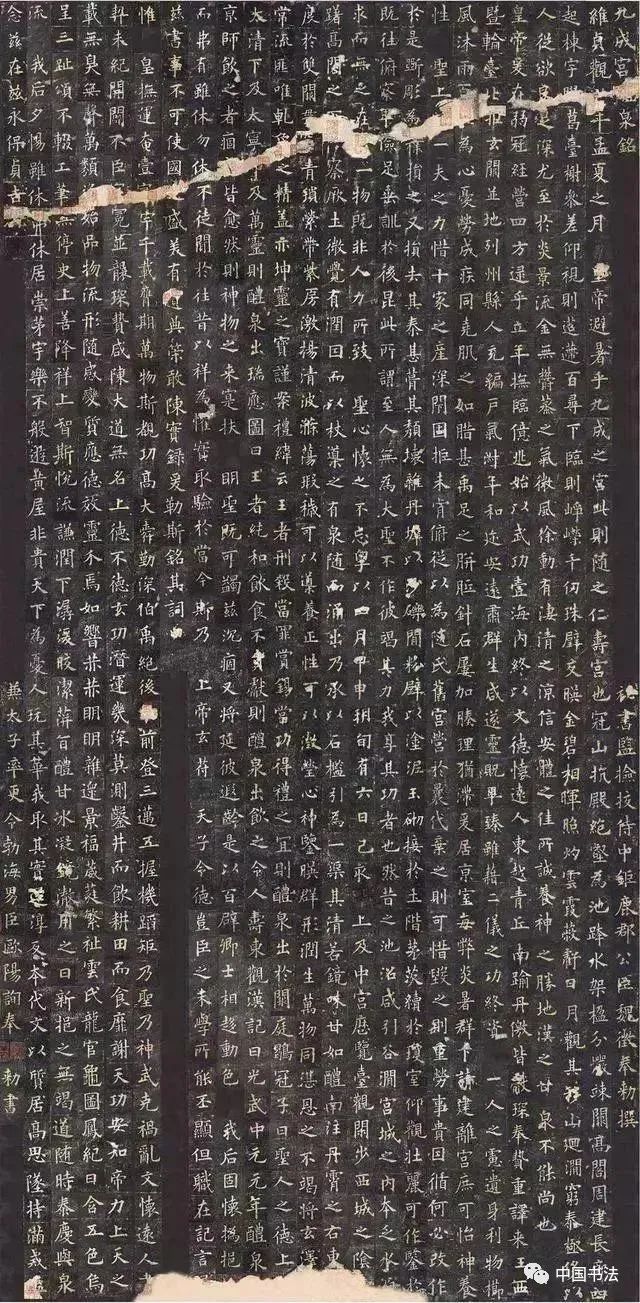 九成宮 泉銘 祕書監檢挍侍中鉅鹿郡公臣魏徵奉勅撰
維貞觀 年孟夏之月 皇帝避暑乎九成之宮此則隨之仁壽宮也冠山抗殿絕壑為池跨水架楹分巖竦闕高閣周建長廊四
起棟宇膠葛臺榭參差仰視則迢遰百尋下臨則崢嶸千仞珠壁交暎金碧相暉照灼雲霞蔽虧日月觀其移山迴澗窮泰極侈以
人從欲良足深尤至於炎景流金無鬱蒸之氣微風徐動有淒清之涼信安體之佳所誠養神之勝地漢之甘泉不能尚也
皇帝爰在弱冠經營四方逮乎立年撫臨億兆始以武功壹海內終以文德懷遠人東越青丘南踰丹徼皆獻琛奉贄重譯來王西
暨輪臺北拒玄闕並地列州縣人充編戶氣淑年和迩安遠肅群生咸遂靈貺畢臻雖藉二儀之功終資一人之慮遺身利物櫛
風沐雨 為心憂勞成疾同堯肌之如腊甚禹足之胼胝針石屢加腠理猶滯爰居京室每弊炎暑群下請建離宮庶可怡神養
性 聖上 一夫之力惜十家之產深閉固拒未肯俯從以為隨氏舊宮營於曩代棄之則可惜毀之則重勞事貴因循何必改作
於是斲彫為樸損之又損去其泰甚葺其頹壞雜丹墀以沙礫間粉壁以塗泥玉砌接於土階茅茨續於瓊室仰觀壯麗可作鑒於
既往俯察卑儉足垂訓於後昆此所謂至人無為大聖不作彼竭其力我享其功者也然昔之池沼咸引谷澗宮城之內本乏水源
求而無之在乎一物既非人力所致 聖心懷之不忘粵以四月甲申朔旬有六日己亥 上及中宮歷覽臺觀閑步西城之陰
躊躇高閣之下俯察厥土微覺有潤因而以杖導之有泉隨而涌出乃承以石檻引為一渠其清若鏡味甘如醴南注丹霄之右東流
度於雙闕貫穿青瑣縈帶紫房激揚清波滌蕩瑕穢可以導養正性可以澂瑩心神鑒暎群形潤生萬物同湛恩之不竭將玄澤
常流匪唯乾象之精蓋亦坤靈之寶謹案禮緯云王者刑殺當罪賞錫當功得禮之宜則醴泉出於闕庭鶡冠子曰聖人之德上
太清下及太寧中及萬靈則醴泉出瑞應圖曰王者純和飲食不貢獻則醴泉出飲之令人壽東觀漢記曰光武中元元年醴泉
京師飲之者痼疾皆愈然則神物之來寔扶 明聖既可蠲茲沉痼又將延彼遐齡是以百辟卿士相趨動色 我后固懷撝挹
而弗有雖休勿休不徒聞於往昔以祥為懼實取驗於當今斯乃 上帝玄符 天子令德豈臣之末學所能丕顯但職在記言
茲書事不可使國之盛美有遺典策敢陳實錄爰勒斯銘其詞曰
惟 皇撫運奄壹寰宇千載膺期萬物斯覩功高大舜勤深伯禹絕後 前登三邁五握機蹈矩乃聖乃神武克禍亂文懷遠人書
契未紀開闢不臣冠冕並襲琛贄咸陳大道無名上德不德玄功潛運幾深莫測鑿井而飲耕田而食靡謝天功安知帝力上天之
載無臭無聲萬類資始品物流形隨感變質應德效靈介焉如響赫赫明明雜遝景福葳蕤繁祉雲氏龍官龜圖鳳紀日含五色烏
呈三趾頌不輟工筆無停史上善降祥上智斯悅流謙潤下潺湲皎潔萍旨醴甘冰凝鏡澈用之日新挹之無竭道隨時泰慶與泉
流 我后夕惕雖休弗休居崇茅宇樂不般遊黃屋非貴天下為憂人玩其華我取其實還淳反本代文以質居高思墜持滿戒溢
念茲在茲永保貞吉 兼太子率更令勃海男臣歐陽詢奉勅書
中国书法